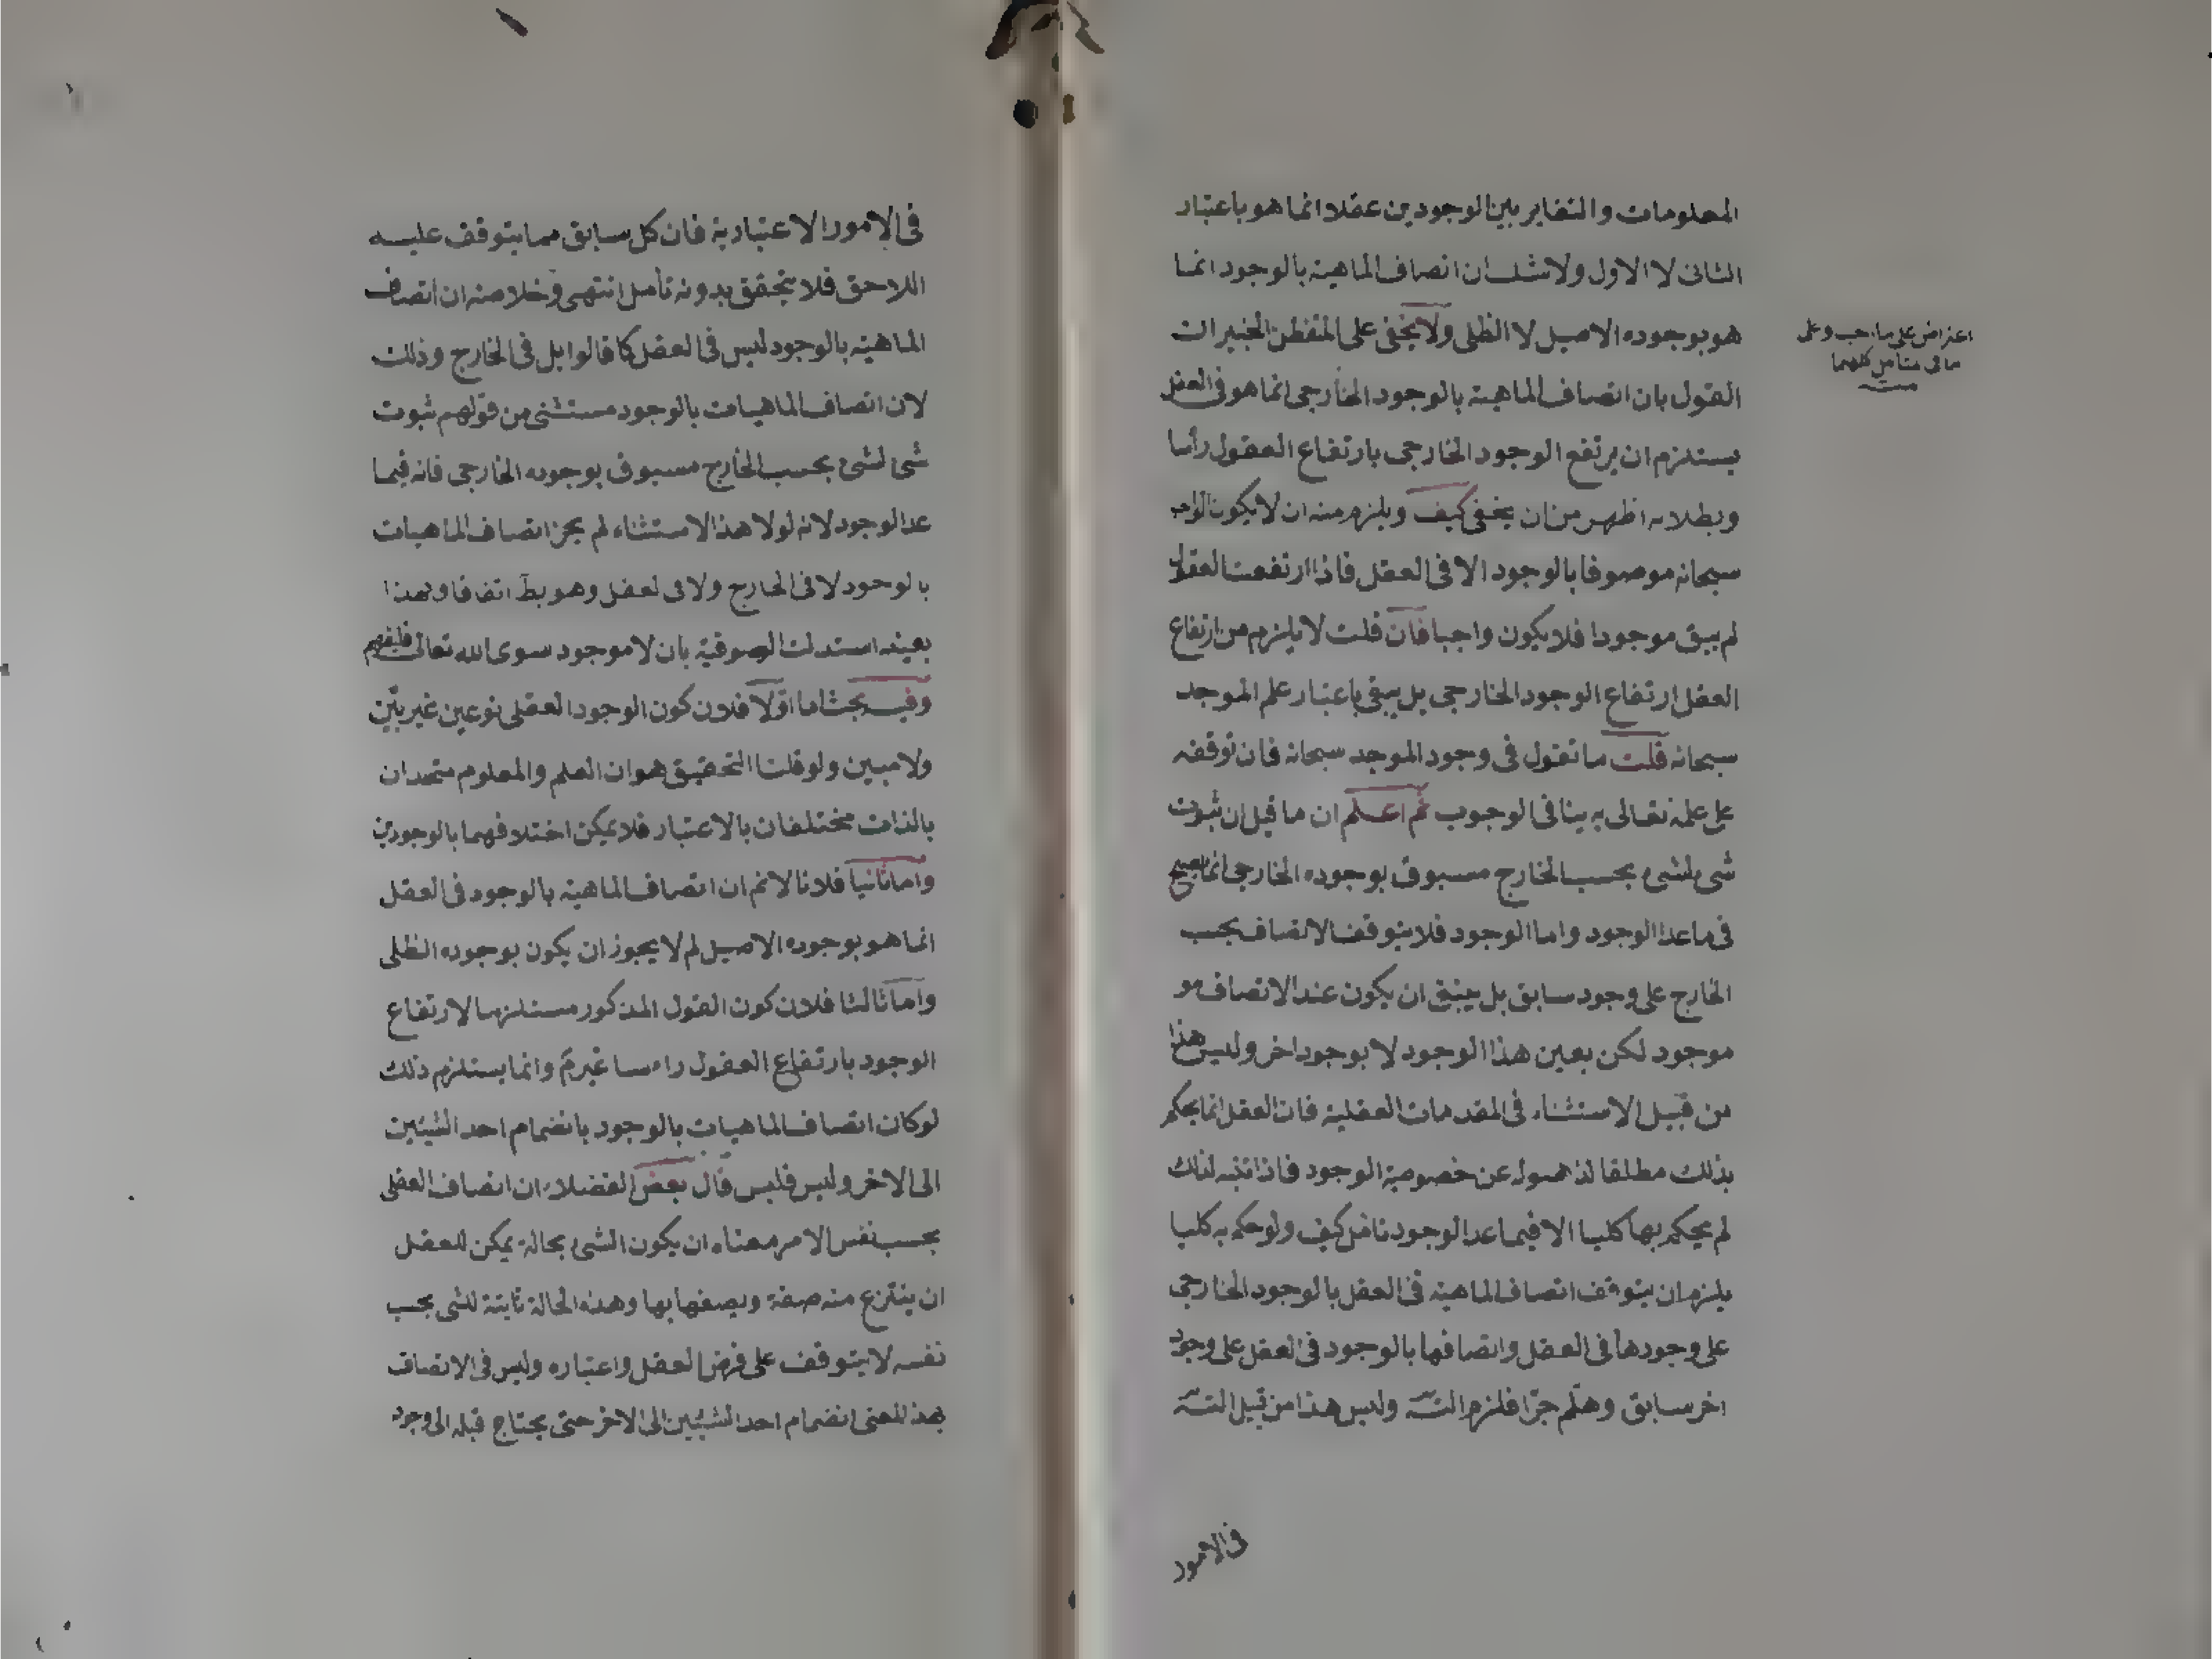 المعلومات والتغاير بين الوجودين عقلا انما هو باعتبار
الثانى لا الاول ولا شك ان اتصاف الماهية بالوجود انما
هو بوجوده الاصيل لا الظلى ولا يخفى على المتفطن الخبير ان
القول بان اتصاف الماهية بالوجود الخارجى انما هو فى العقل
يستلزم ان يرتفع الوجود الخارجى بارتفاع العقول رأسا
وبطلانه اظهر من ان يخفى كيف ويلزم منه ان لا يكون الواجب
سبحانه موصوفا بالوجود الا فى العقل فاذا ارتفعت العقول
لم يبق موجودا فلا يكون واجبا فان قلت لا يلزم من ارتفاع
العقل ارتفاع الوجود الخارجى بل يبقى باعتبار علم الموجد
سبحانه قلت ما تقول فى وجود الموجد سبحانه فان توقفه
على علمه تعالى به ينافى الوجوب ثم اعلم ان ما قيل ان ثبوت
شئ لشئ بحسب الخارج مسبوق بوجوده الخارجى انما يصح
فى ما عدا الوجود واما الوجود فلا يتوقف الاتصاف بحسب
الخارج على وجود سابق بل ينبغى ان يكون عند الاتصاف هو
موجود لكن بعين هذا الوجود لا بوجود اخر وليس هذا
من قبيل الاستثناء فى المقدمات العقلية فان العقل انما يحكم
بذلك مطلقا لذهوله عن خصوصية الوجود فاذا تنبه لذلك
لم يحكم بها كليا الا فيما عدا الوجود تأمل كيف ولو حكم به كليا
يلزم ان يتوقف اتصاف الماهية فى العقل بالوجود الخارجى
على وجودها فى العقل واتصافها بالوجود فى العقل على وجود
اخر سابق وهلم جرا فلزم التسـ وليس هذا من قبيل التسـ
فى الامور
اعتراض على ما
ما فى كلهما
فى الامور الاعتبارية فان كل سابق مما يتوقف عليه
اللاحق فلا يتحقق بدونه تأمل انتهى وخلاصته ان اتصاف
الماهية بالوجود ليس فى العقل كما قالوا بل فى الخارج وذلك
لان اتصاف الماهيات بالوجود مستثنى من قولهم ثبوت
شئ لشئ بحسب الخارج مسبوق بوجوده الخارجى فانه فيما
عدا الوجود لانه لولا هذا الاستثناء لم يجز اتصاف الماهيات
بالوجود لا فى الخارج ولا فى العقل وهو بط اتفاقا وبهذا
بعينه استدلت الصوفية بان لا موجود سوى الله تعالى فليفهم
وفيه بحث اما اولا فلان كون الوجود العقلى نوعين غير بيّن
ولا مبين ولو قلت التحقيق هو ان العلم والمعلوم متحدان
بالذات مختلفان بالاعتبار فلا يمكن اختلافهما بالوجودين
واما ثانيا فلانا لانم ان اتصاف الماهية بالوجود فى العقل
انما هو بوجوده الاصيل لم لا يجوز ان يكون بوجوده الظلى
واما ثالثا فلان كون القول المذكور مستلزما لارتفاع
الوجود بارتفاع العقول راءسا غير مّ وانما يستلزم ذلك
لو كان اتصاف الماهيات بالوجود بانضمام احد الشيئين
الى الاخر وليس فليس قال بعض الفضلاء ان اتصاف العقلى
بحسب نفس الامر معناه ان يكون الشئ بحالة يمكن للعقل
ان ينتزع منه صفة ويصفها بها وهذه الحالة ثابتة للشى بحسب
نفسه لا يتوقف على فرض العقل واعتباره وليس فى الاتصاف
بهذا المعنى انضمام احد الشيئين الى الاخر حتى يحتاج قبله الى وجود